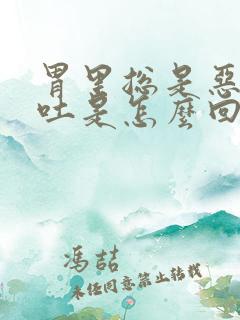 胃里总是恶
吐是怎么回
冯喆
未经同意禁止转载